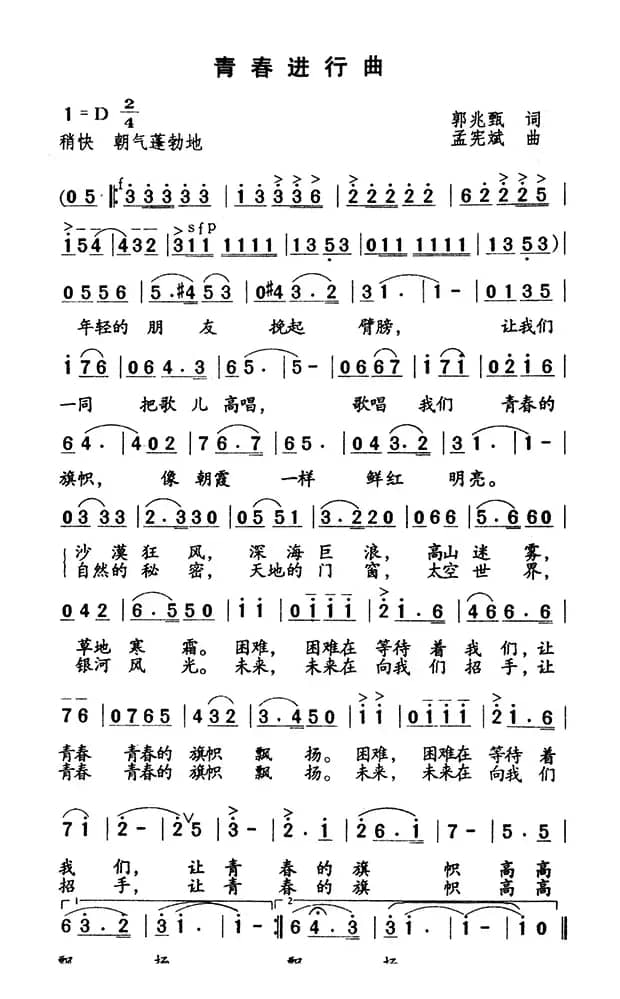 青春进行曲
1=D 2/4
郭兆甄 词
稍快 朝气蓬勃地
孟宪斌 曲
(05· ‖: f 33333 | 13336 | 22222 | 62225 |
154 | 432 | sfp 311 1111 | 1353 | 011 1111 | 1353) |
0556 | 5·#453 | 0#43·2 | 31· | 1- | 0135 |
年轻的 朋友 挽起 臂膀， 让我们
176 | 064·3 | 65· | 5- | 0667 | 171 | 0216 |
一同 把歌儿高唱， 歌唱 我们 青春的
64· | 402 | 76·7 | 65· | 043·2 | 31· | 1- |
旗帜， 像 朝霞 一样 鲜红 明亮。
03 33 | 2·330 | 05 51 | 3·220 | 066 | 5·660 |
沙漠狂风， 深海巨浪， 高山迷雾，
自然的秘密， 天地的门窗， 太空世界，
042 | 6·550 | 11 | 0111 | 21·6 | 466·6 |
草地寒霜。困难， 困难在 等待 着我们，让
银河风光。未来， 未来在 向我们招手，让
76 | 0765 | 432 | 3·450 | 11 | 0111 | 21·6 |
青春 青春的 旗帜 飘扬。困难， 困难在 等待着
青春 青春的 旗帜 飘扬。未来， 未来在 向我们
71 | 2- | 25 | 3- | 2·1 | 26·1 | 7- | 5·5 |
我们， 让青春的旗帜高高
招手， 让青春的旗帜高高
1 63·2 | 31· | 1- | 12 :‖ 2 64·3 | 31· | 1- | 10 ‖
飘 扬 飘 扬